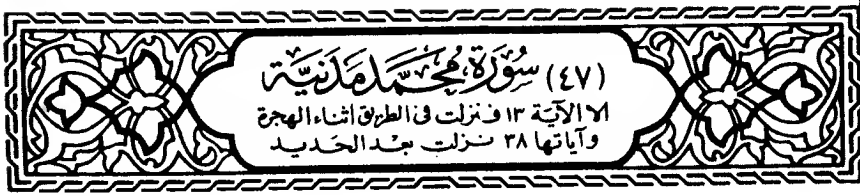 (٤٧) سُورَة مُحَمَّد مَدَنِيَّة
الا الآية ١٣ فنزلت فى الطريق أثناء الهجرة
وآياتها ٣٨ نزلت بعد الحديد